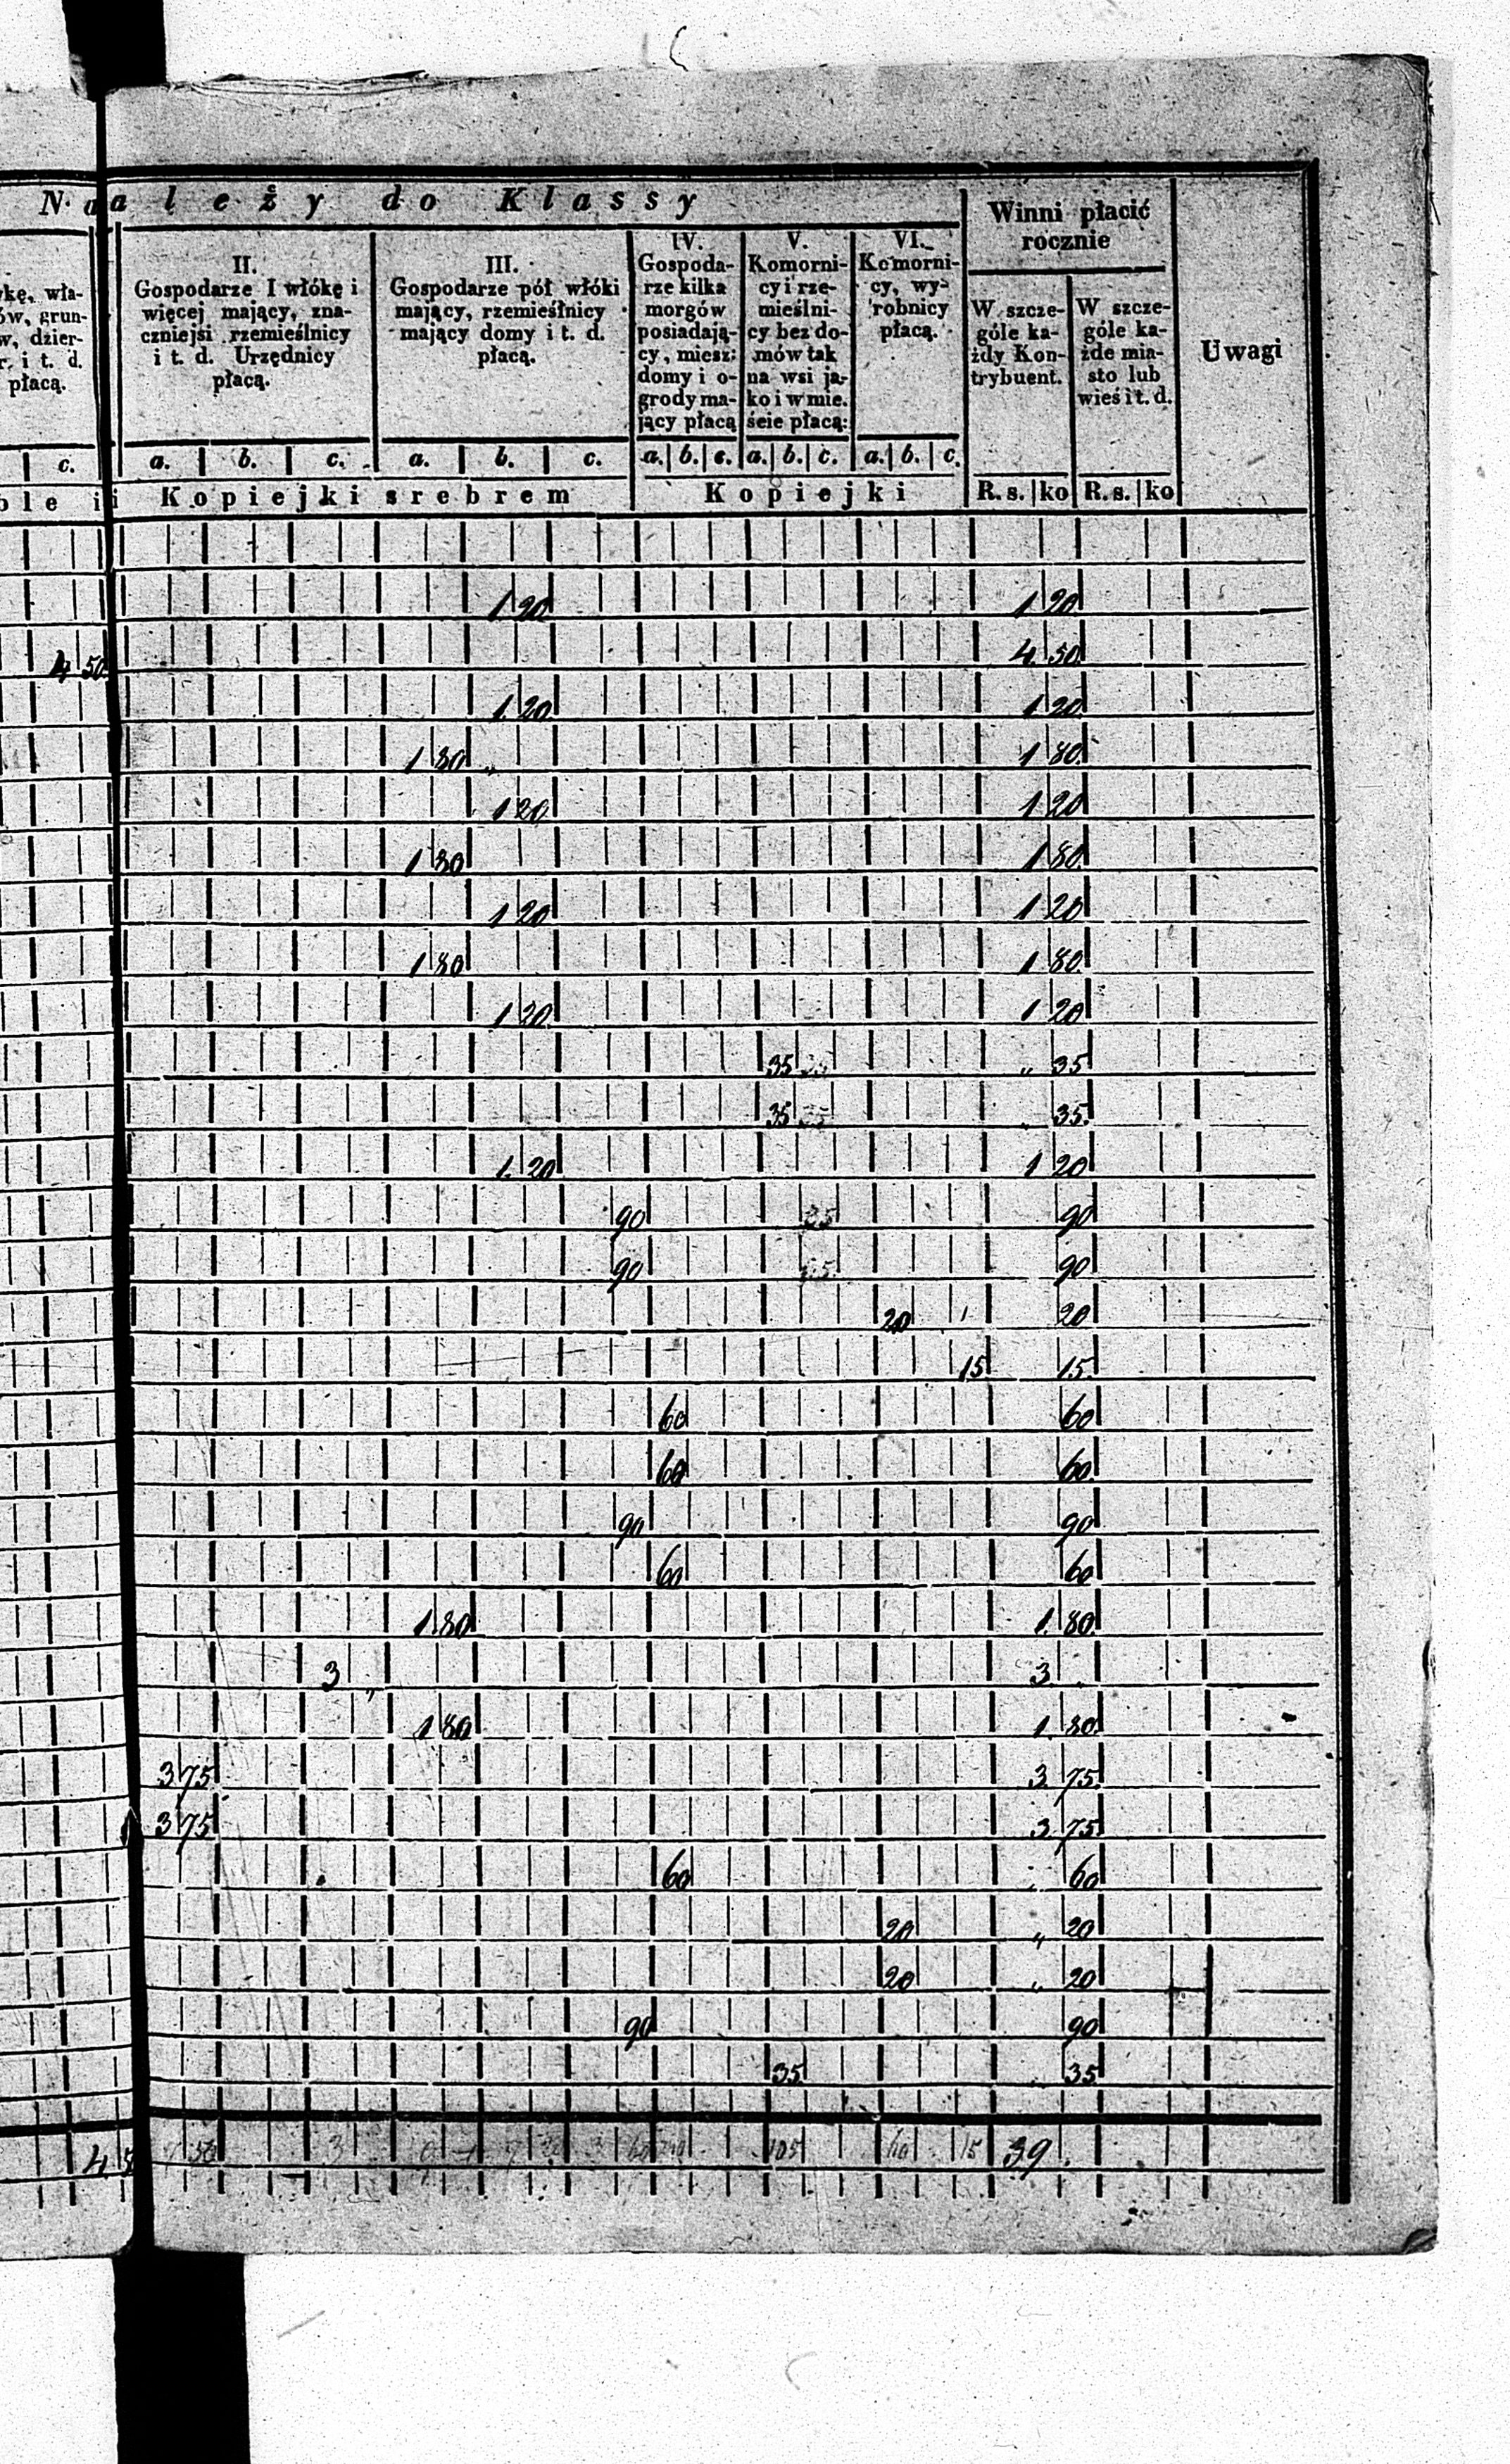 Należy do Klassy
Winni płacić
rocznie
Uwagi
kę, wła-
ów, grun-
w, dzier-
r. i t. d.
płacą.
II.
Gospodarze I włókę i
więcej mający, zna-
czniejsi rzemieślnicy
i t. d. Urzędnicy
płacą.
III.
Gospodarze pół włóki
mający, rzemieślnicy
mający domy i t. d.
płacą.
IV.
Gospoda-
rze kilka
morgów
posiadają-
cy, miesz:
domy i o-
grody ma-
jący płacą
V.
Komorni-
cy i rze-
mieślni-
cy bez do-
mów tak
na wsi ja-
ko i w mie.
ście płacą:
VI.
Komorni-
cy, wy-
robnicy
płacą.
W szcze-
góle ka-
żdy Kon-
trybuent.
W szcze-
góle ka-
żde mia-
sto lub
wieś i t. d.
c. a. b. c. a. b. c. a. b. c. a. b. c. a. b. c.
ble i Kopiejki srebrem Kopiejki R. s. ko R. s. ko
1 20 1 20
4 50 4 50
1 20 1 20
1 80 „ 1 80
1 20 1 20
1 80 1 80
1 20 1 20
1 80 1 80
1 20 1 20
35 „ 35
35 „ 35
1 20 1 20
90 90
90 90
20 20
15 15
60 60
60 60
90 90
60 60
1 80 1 80
3 „ 3
1 80 1 80
3 75 3 75
3 75 3 75
60 60
20 „ 20
20 „ 20
90 90
35 35
4 50 3 105 60 15 39